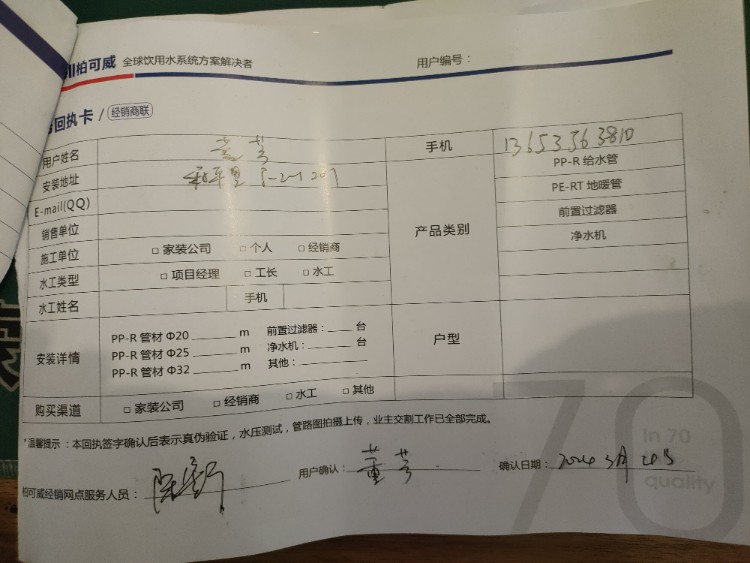 柏可威 全球饮用水系统方案解决者 用户编号:
回执卡 / 经销商联
用户姓名 董芳 手机 13653563810
安装地址 和平里 1-2-1201 产品类别 PP-R 给水管
E-mail(QQ) PE-RT 地暖管
销售单位 前置过滤器
施工单位 □ 家装公司 □ 个人 □ 经销商 净水机
水工类型 □ 项目经理 □ 工长 □ 水工
水工姓名 手机
安装详情 PP-R 管材 Φ20 m 前置过滤器: 台 户型
PP-R 管材 Φ25 m 净水机: 台
PP-R 管材 Φ32 m 其他:
购买渠道 □ 家装公司 □ 经销商 □ 水工 □ 其他
*温馨提示:本回执签字确认后表示真伪验证,水压测试,管路图拍摄上传,业主交割工作已全部完成。
柏可威经销网点服务人员: 用户确认: 董芳 确认日期: 2024 3月
70
In 70
quality